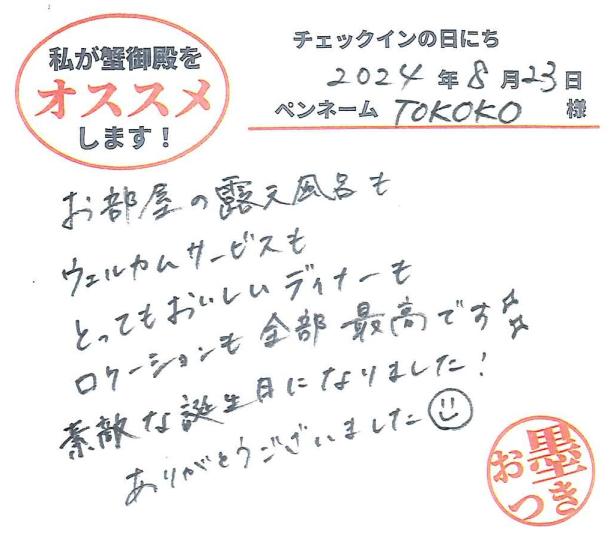 私が蟹御殿を
オススメ
します！
チェックインの日にち
2024年8月23日
ペンネーム TOKOKO 様
お部屋の露天風呂も
ウェルカムサービスも
とってもおいしいディナーも
ロケーションも全部最高です☆☆
素敵な誕生日になりました！
ありがとうございました
お墨
つき